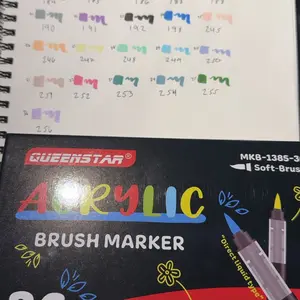 190 191 192 193 195
246 247 248 249 250
251 252 253 254 255
256
QUEENSTAR®
MKB-1385-3
Soft-Brus
ACRYLIC
BRUSH MARKER
"Direct liquid type"